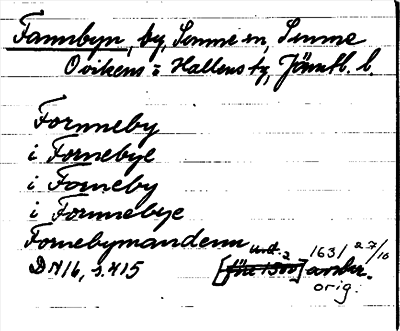 Fannbyn, by, Sunne sn, Sunne
Ovikens o Hallens tg, Jämtl. l.
Fornneby
i Fornebye
i Forneby
i Fornnebye
Fornebymandenn
DN 16, s. 415
[före 1500] avskr. 1631 27/10
orig.